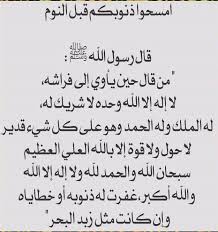 امسحوا ذنوبكم قبل النوم
قال رسول الله ﷺ :
"من قال حين يأوي إلى فراشه،
لا إله إلا الله وحده لا شريك له،
له الملك وله الحمد وهو على كل شيء قدير
لا حول ولا قوة إلا بالله العلي العظيم
سبحان الله والحمد لله ولا إله إلا الله
والله أكبر، غفرت له ذنوبه أو خطاياه
وإن كانت مثل زبد البحر"